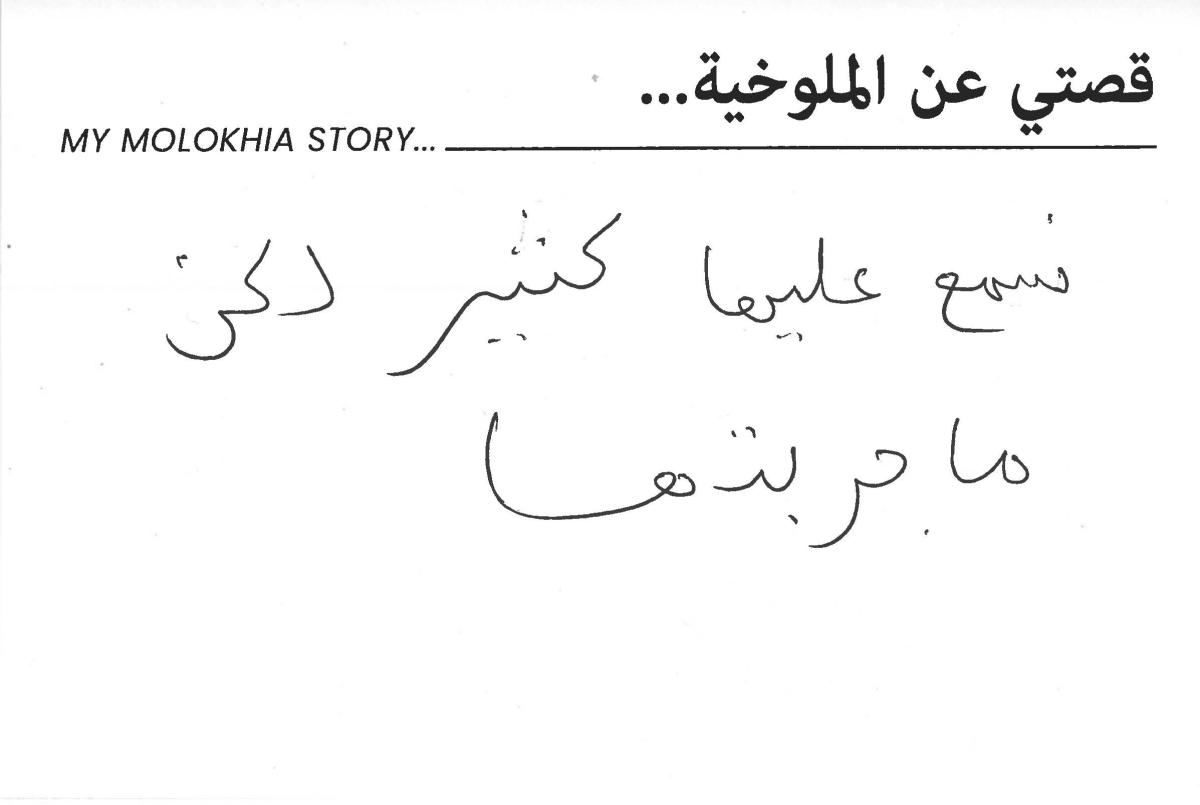 قصتي عن الملوخية...
MY MOLOKHIA STORY...
نسمع عليها كثير لكن
ما جربتها